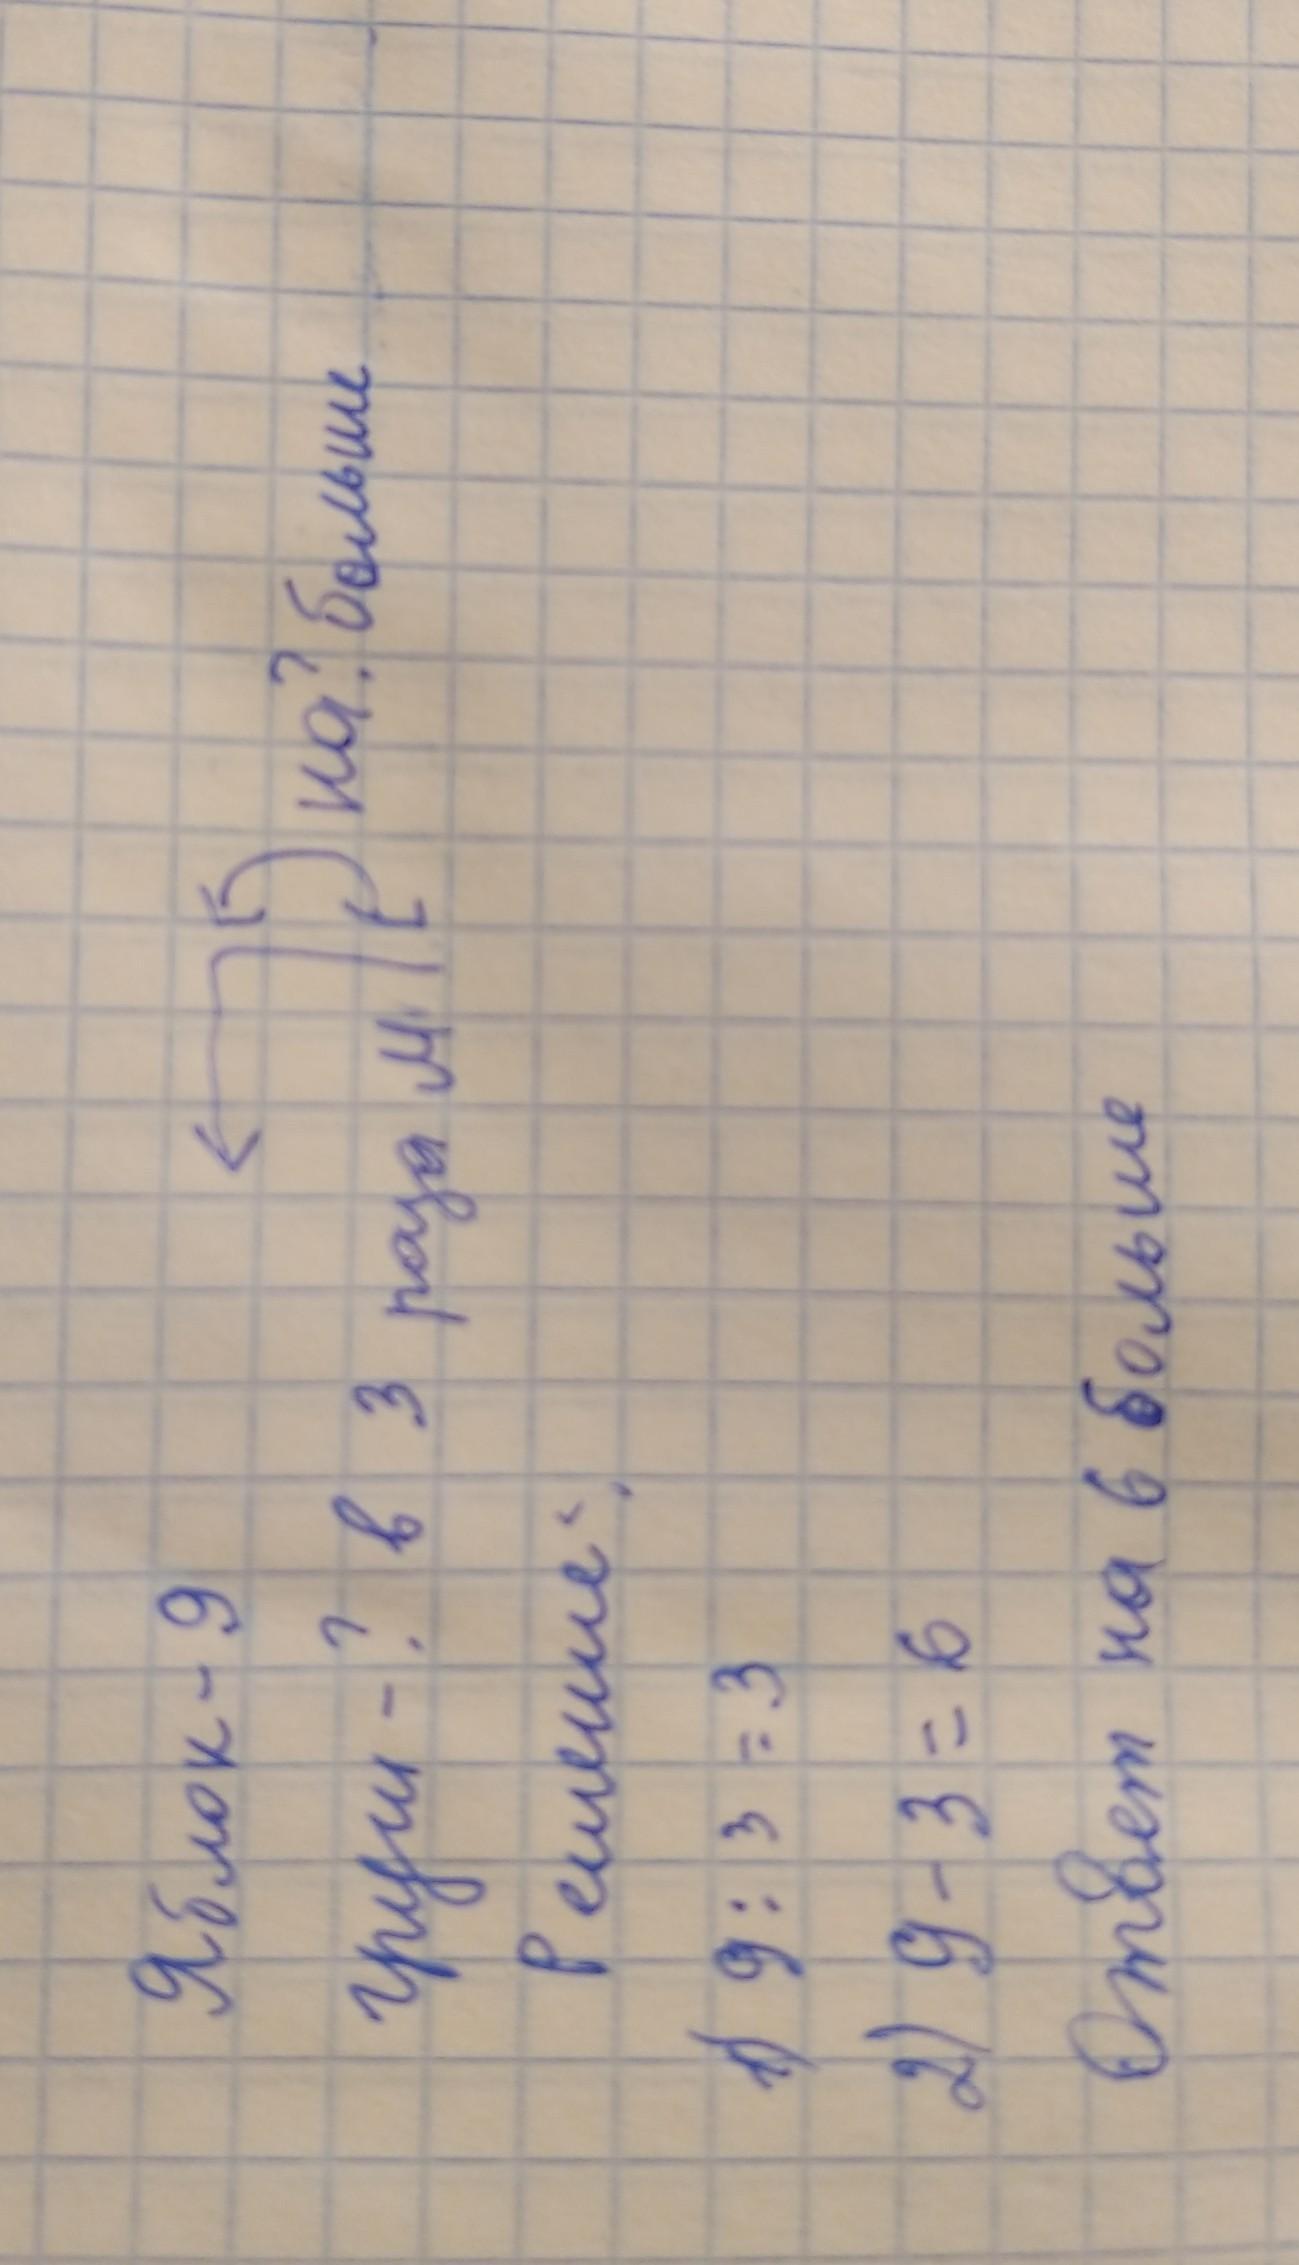 Яблок - 9
груш - ? в 3 раза м на? больше
Решение:
1) 9 : 3 = 3
2) 9 - 3 = 6
Ответ на 6 больше